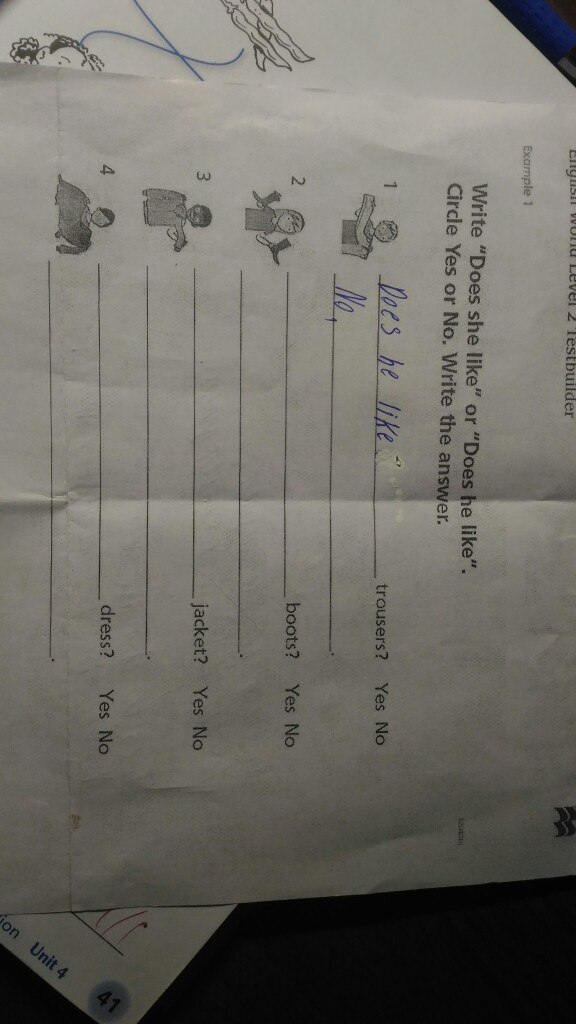 English World Level 2 Testbuilder
Example 1
Write "Does she like" or "Does he like".
Circle Yes or No. Write the answer.
1 Does he like trousers? Yes No
No, .
2 boots? Yes No
.
3 jacket? Yes No
.
4 dress? Yes No
.
Unit 4
41